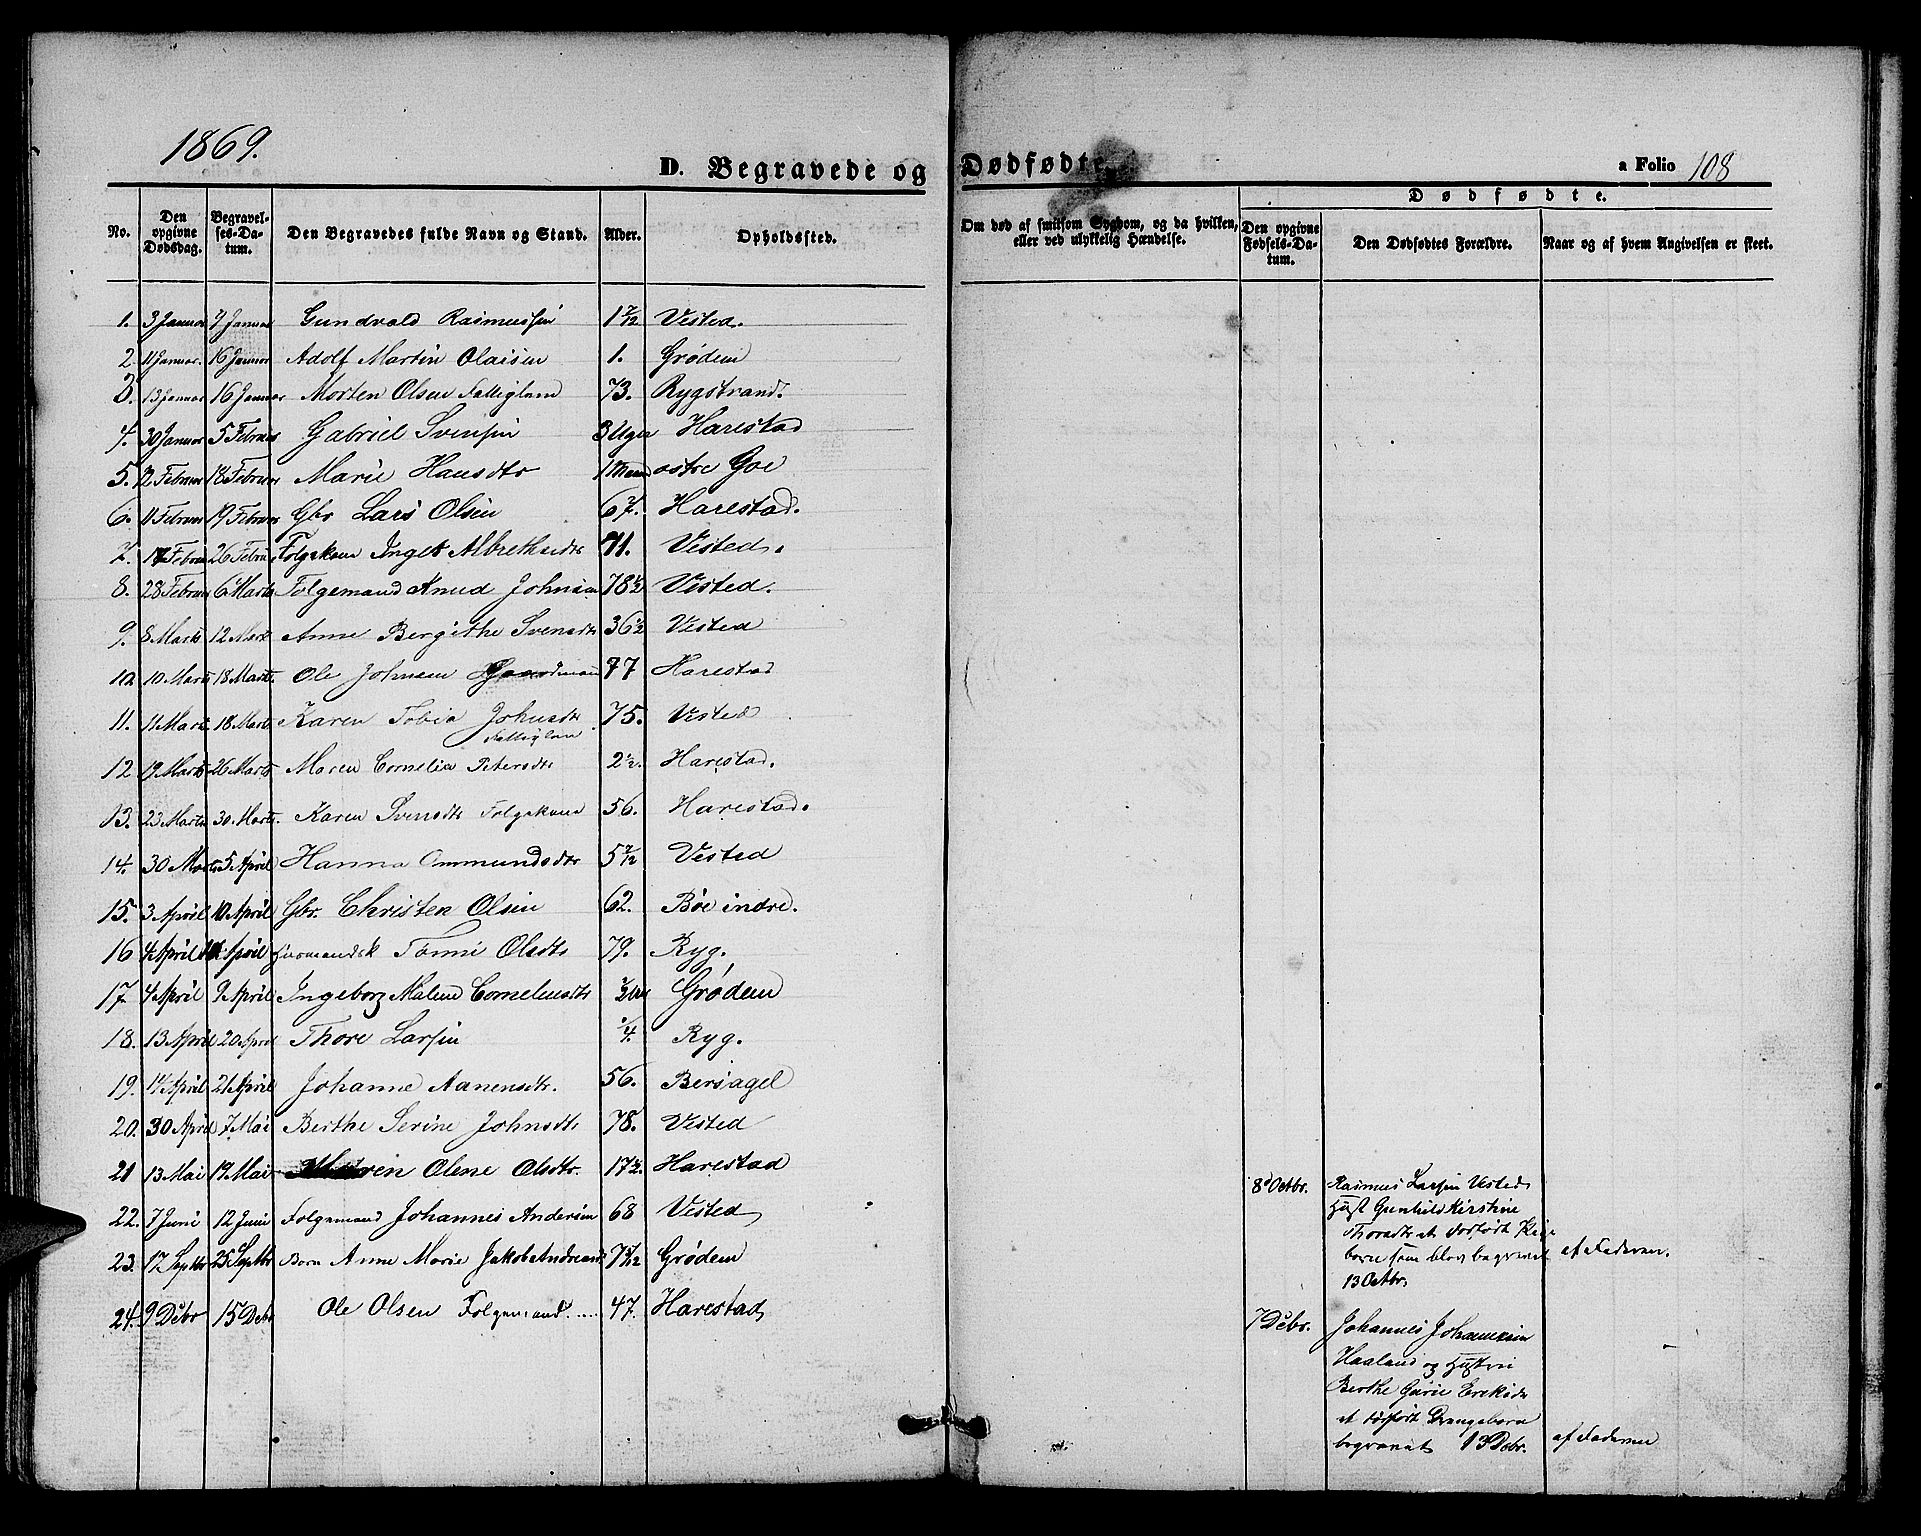 1869.
D. Begravede og Dødfødte.
a Folio 108
Dødfødte.
No. Den opgivne Dødsdag. Begravelses-Datum. Den Begravedes fulde Navn og Stand. Alder. Opholdssted. Om død af smitsom Sygdom, og da hvilken, eller ved ulykkelig Hændelse. Den opgivne Fødsels-Datum. Den Dødfødtes Forældre. Naar og af hvem Angivelsen er skeet.
1. 3 Januar 7 Januar Gundvald Rasmussen 1 7/12 Vested.
2. 11 Januar. 16 Januar Adolf Martin Olaisen 1. Grødem
3. 13 Januar 16 Januar Morten Olsen Fattiglem 73. Rygstrand.
4. 30 Januar 5 Februar Gabriel Svensen 3 Uger Harestad
5. 12 Februar 18 Februar Marie Hansdtr 1 Maan østre Goe
6. 11 Februar 19 Februar Gbr Lars Olsen 67. Harestad.
7. 17 Februar 26 Februar Folgekone Inget Albrethsdtr 71. Vested.
8. 28 Februar 6 Marts Folgemand Knud Johnsen 78 1/2 Vested.
9. 8 Marts 12 Marts Anne Bergithe Svensdtr 36 1/2 Vested
10 10 Marts 18 Marts. Ole Johnsen Gaardmand 77 Harestad
11. 11 Marts 18 Marts Karen Tobia Johnsdtr 75. Vested
Fattiglem
12 19 Marts 26 Marts Maren Cornelia Petersdtr 2 1/2. Harestad.
13. 23 Marts 30 Marts. Karen Svensdtr Folgekone 56. Harestad.
14. 30 Marts 5 April Hanna Ommundsdtr 5 7/12 Vested
15. 3 April 10 April Gbr. Christen Olsen 62. Bøe indre.
16 4 April April Tonni Olsdtr 79. Ryg.
17. 4 April 9 April Ingeborg Malene Corneliusdtr 1/2 Aar Grødem
18. 13 April 20 April Thore Larsen 1/4. Ryg.
19. 14 April 21 April Johanne Aanensdtr. 56. Bersagel
20. 30 April 7 Mai Berthe Serine Johnsdtr 78. Vested
21 13 Mai 19 Mai Maren Olene Olsdtr. 17 1/2. Harestad
22. 7 Juni 12 Juni Folgemand Johannes Andersen 68 Vested
23. 17 Septbr 25 Septbr Barn Anne Marie Jakobe Andreasd 7 Grødem
24. 9 Debr 15 Debr Ole Olsen Folgemand. 47. Harestad
8d Octbr. Rasmus Larsen Vested
Hust Gunhild Kirstine
Thorsdtr et dødfødt Pige
barn som blev begravet af Faderen.
13 Octbr.
7 Debr. Johannes Johannesen
Haaland og Hustru
Berthe Gurie Eriksdr
et dødfødt Drengebarn
begravet 13 Debr. af Faderen